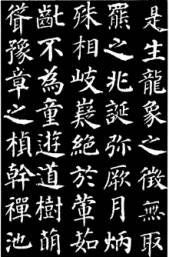 是生龍象之徵無取
羆之兆誕弥厥月炳
殊相岐嶷絕於葷茹
齔不為童遊道樹萌
聳豫章之楨幹禪池